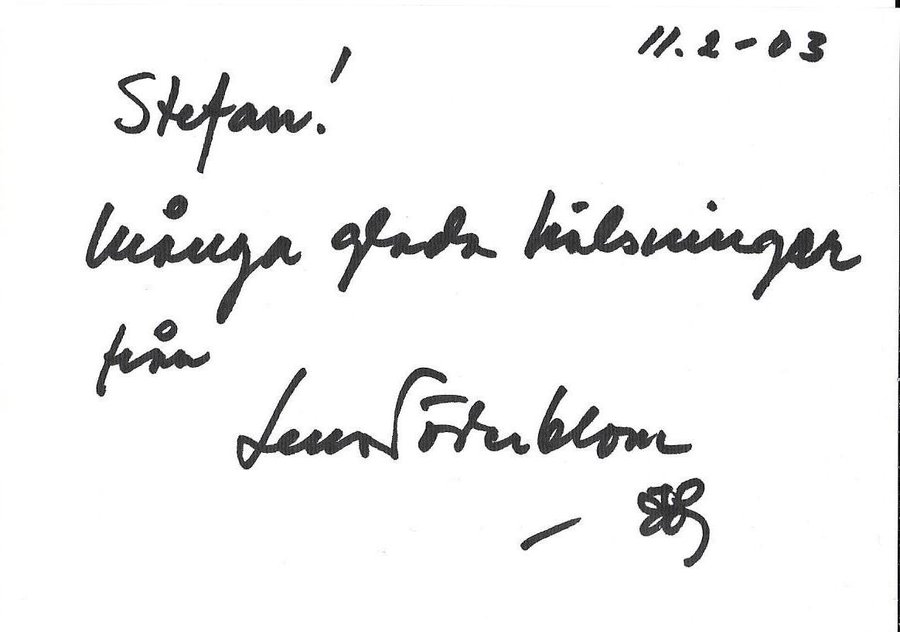 11.2-03
Stefan!
Många glada hälsningar
från
Lena Söderblom